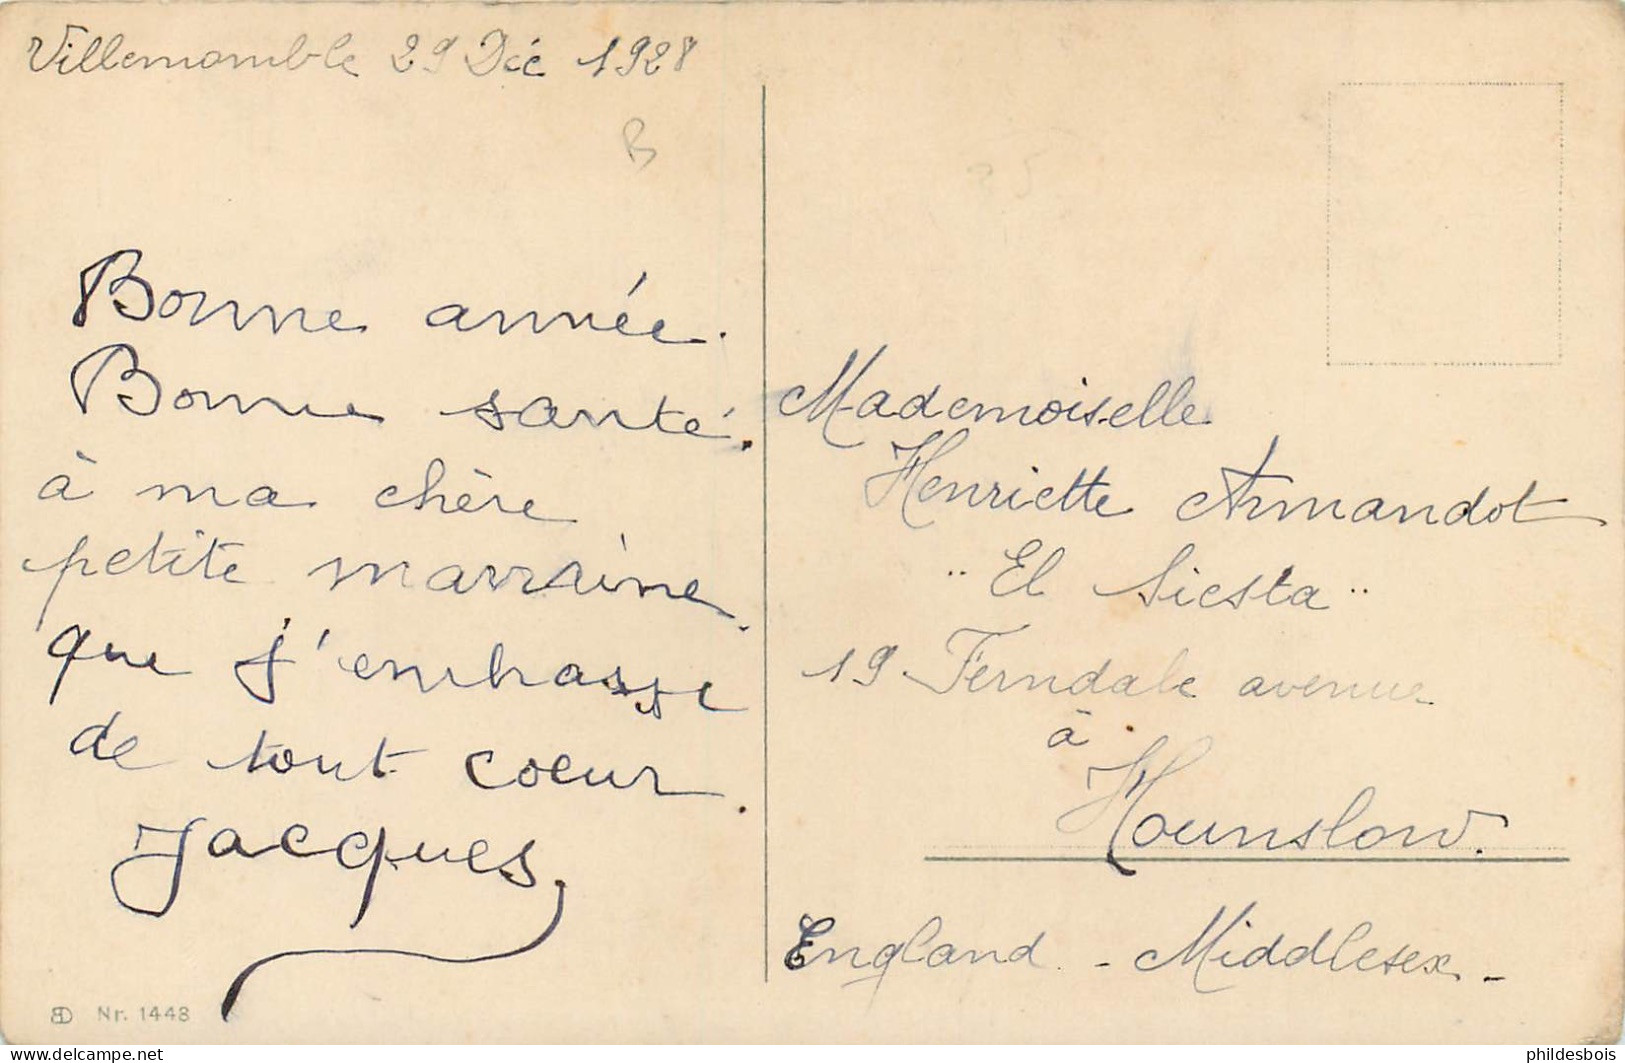 Villemomble 29 Déc 1928
B
Bonne année.
Bonne santé.
à ma chère
petite marraine
que j'embrasse
de tout coeur.
Jacques
Mademoiselle
Henriette Armandot
"El Siesta"
19 Ferndale avenue
à
Hounslow.
England - Middlesex -
BD Nr. 1448
https://www.delcampe.net
phildesbois